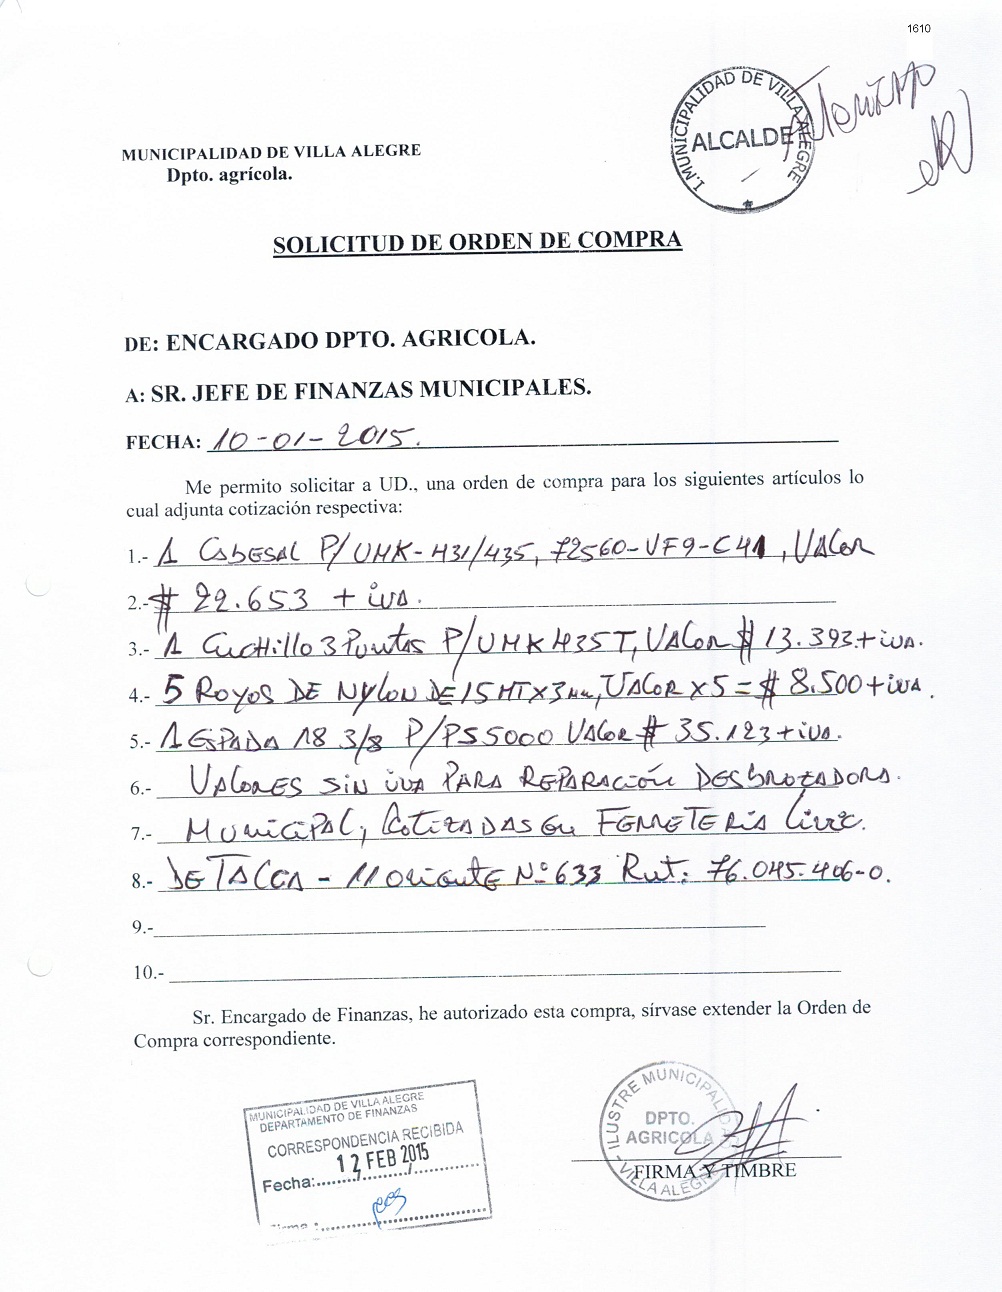 1610
I. MUNICIPALIDAD DE VILLA ALEGRE
ALCALDE
MUNICIPALIDAD DE VILLA ALEGRE
Dpto. agrícola.
SOLICITUD DE ORDEN DE COMPRA
DE: ENCARGADO DPTO. AGRICOLA.
A: SR. JEFE DE FINANZAS MUNICIPALES.
FECHA: 10-01-2015.
Me permito solicitar a UD., una orden de compra para los siguientes artículos lo
cual adjunta cotización respectiva:
1.- 1 CABESAL P/UMK-431/435, 72560-VF9-C41, VALOR
2.- $ 22.653 + iVA.
3.- 1 CUCHillo 3 PuntAs P/UMK 435T, VALOR $ 13.393.+ iVA.
4.- 5 ROYOS DE NYLON DE 15 MT X 3mm, VALOR X 5 = $ 8.500 + iVA.
5.- 1 ESPADA 18 3/8 P/PS5000 VALOR $ 35.123 + iVA.
6.- VALORES SiN iVA PARA REPARACiÓN DESBROZADORA.
7.- MUNiCiPAL, COTiZADAS EN FERRETERIA
8.- DE TALCA - 11 ORiENTE Nº 633 Rut: 76.045.406-0.
9.-
10.-
Sr. Encargado de Finanzas, he autorizado esta compra, sírvase extender la Orden de
Compra correspondiente.
MUNICIPALIDAD DE VILLA ALEGRE
DEPARTAMENTO DE FINANZAS
CORRESPONDENCIA RECIBIDA
12 FEB 2015
Fecha:......./......./.......
Firma :
ILUSTRE MUNICIPALIDAD
DPTO.
AGRICOLA
- VILLA ALEGRE
FIRMA Y TIMBRE